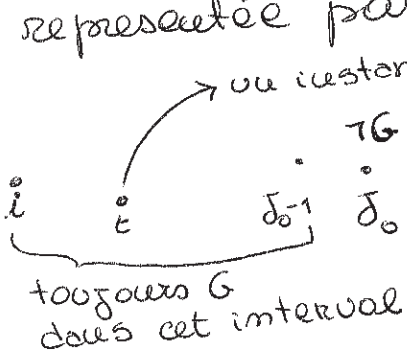 représentée pa
un instan
¬G
i t j₀-1 j₀
toujours G
dans cet interval